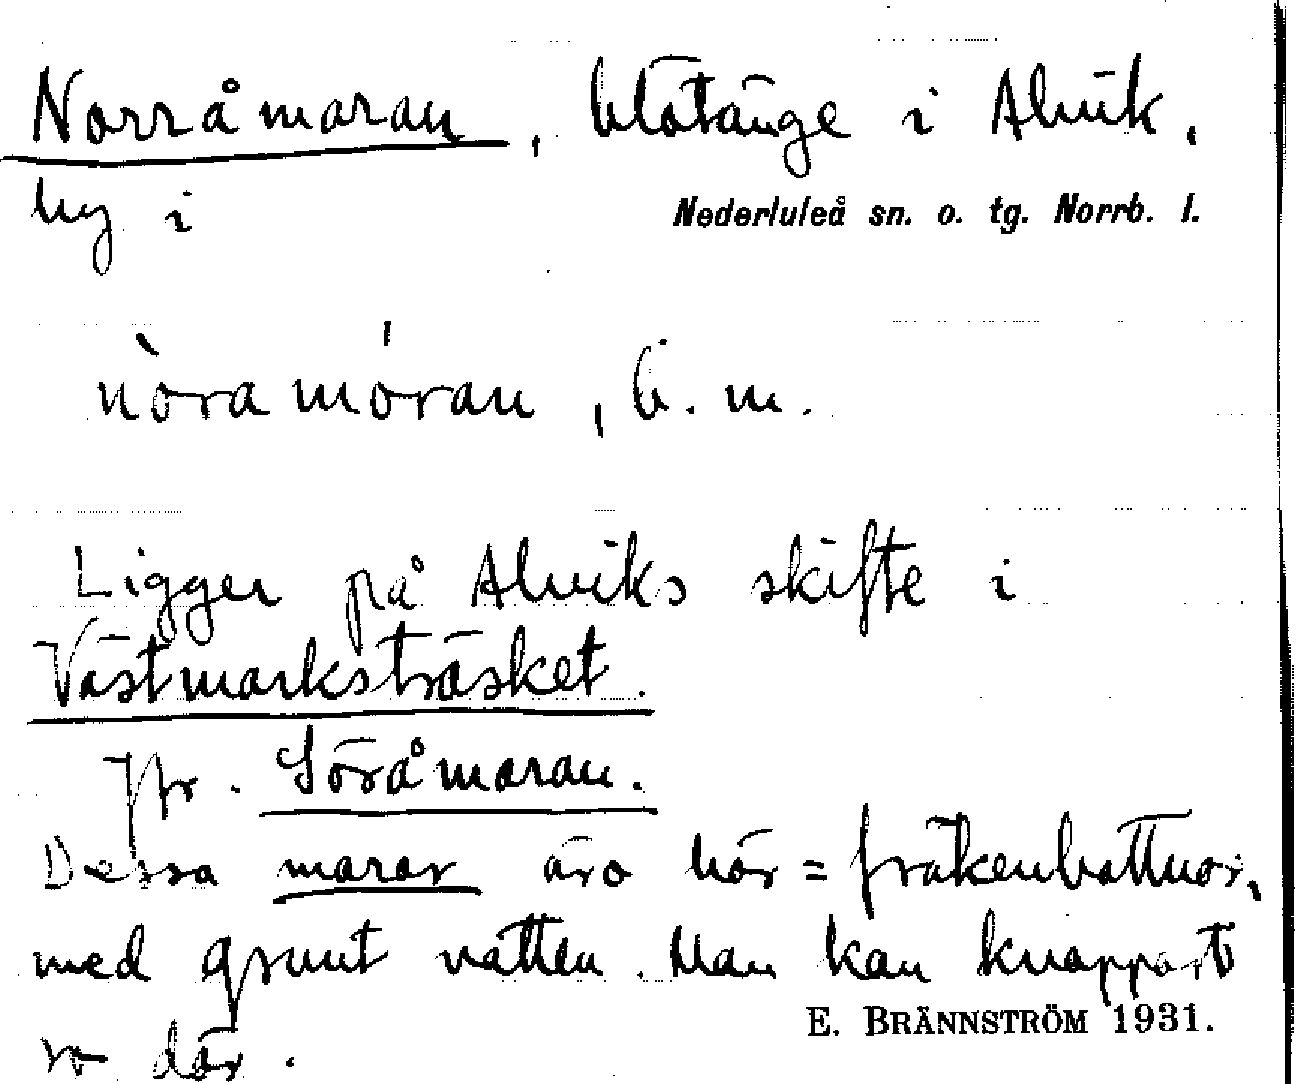 Norråmaran, blötänge i Alvik,
by i Nederluleå sn. o. tg. Norrb. l.
nòramóran, b. m.
Ligger på Alviks skifte i
Västmarksträsket.
Jfr. Söråmaran.
Dessa maror äro här = fräkenbottnar,
med grunt vatten. Man kan knappast
E. BRÄNNSTRÖM 1931.
ro där.